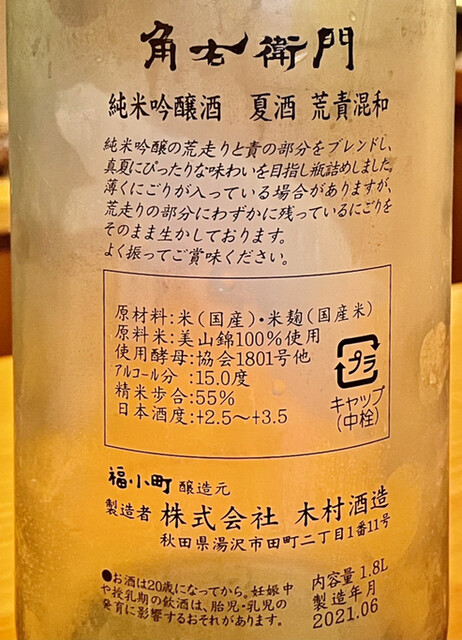 角右衛門
純米吟醸酒 夏酒 荒責混和
純米吟醸の荒走りと責の部分をブレンドし、
真夏にぴったりな味わいを目指し瓶詰めしました。
薄くにごりが入っている場合がありますが、
荒走りの部分にわずかに残っているにごりを
そのまま生かしております。
よく振ってご賞味ください。
原材料:米(国産)・米麹(国産米)
原料米:美山錦100%使用
使用酵母:協会1801号他
アルコール分:15.0度
精米歩合:55%
日本酒度:+2.5~+3.5
プラ
キャップ
(中栓)
福小町 醸造元
製造者 株式会社 木村酒造
秋田県湯沢市田町二丁目1番11号
●お酒は20歳になってから。妊娠中
や授乳期の飲酒は、胎児・乳児の
発育に影響するおそれがあります。
内容量 1.8L
製造年月
2021.06